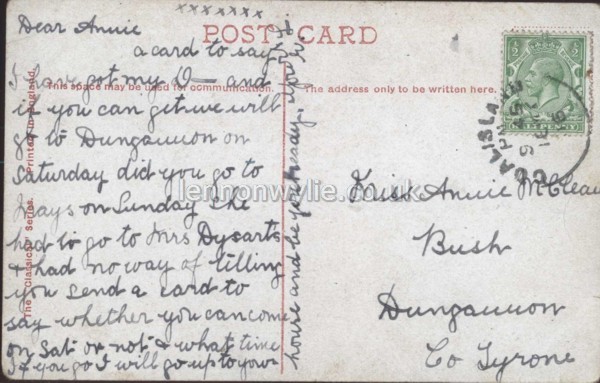 xxxxxxx
POST CARD
Dear Annie
a card to say
I have got my O— and
This space may be used for communication.
The address only to be written here.
if you can get we will
go to Dungannon on
Saturday did you go to
Mays on Sunday she
had to go to Mrs Dysarts
& had no way of tilling
you send a card to
say whether you can come
on Sat or not & what time
If you go I will go up to your
house and be
The "Classical" Series.
Printed in England.
Miss Annie McClean
Bush
Dungannon
Co Tyrone
COALISLAND
HALF PENNY
lennonwylie.co.uk